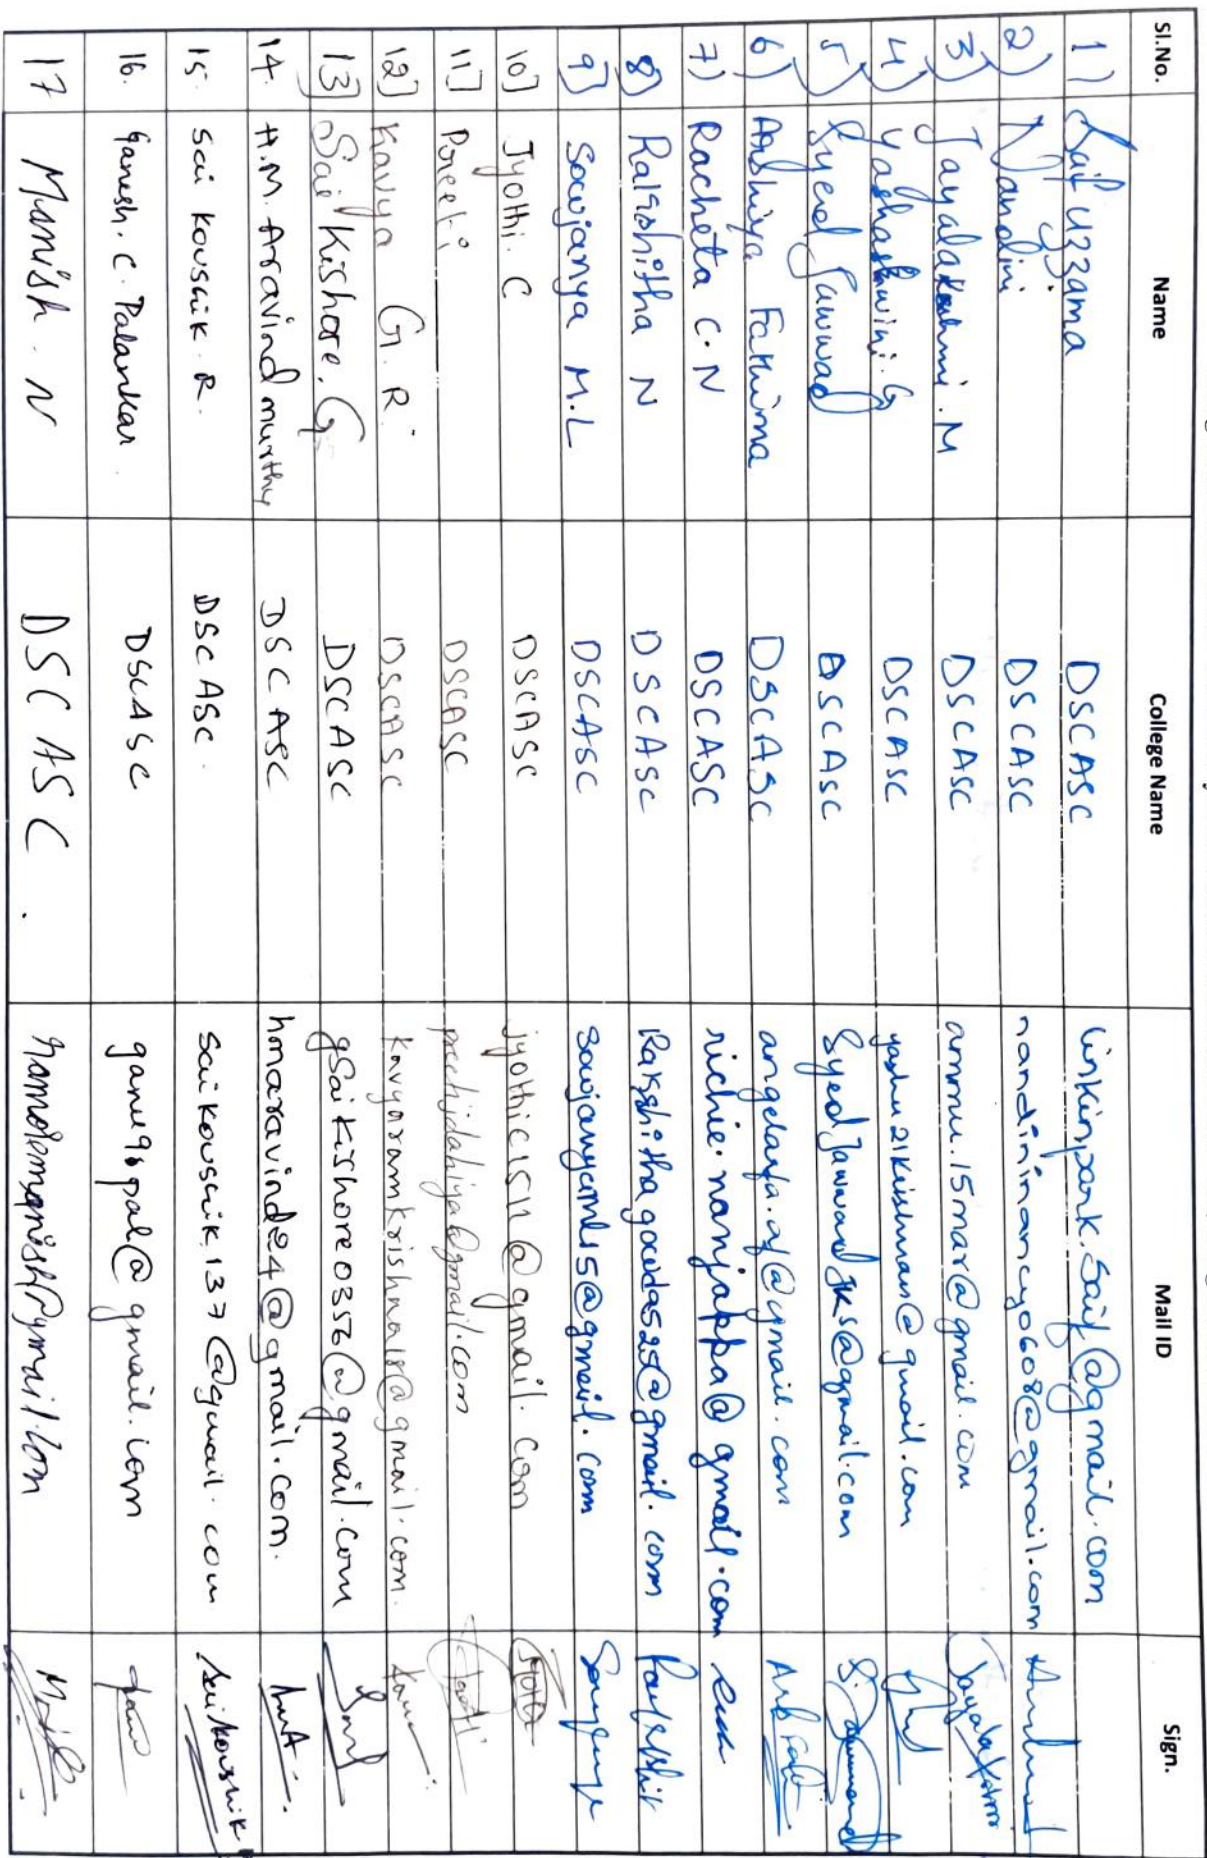 Sl.No. Name College Name Mail ID Sign.
1) Saif uzzama DSCASC linkinpark.saif@gmail.com
2) Nandini DSCASC nandininancy0608@gmail.com
3) Jayalakshmi.M DSCASC ammu.15mar@gmail.com
4) Yashashwini.G DSCASC yashu21krishnan@gmail.com
5) Syed Jawwad DSCASC SyedJawwadJks@gmail.com
6) Arshiya Fathima DSCASC @gmail.com
7) Racheta C.N DSCASC richie.nanjappa@gmail.com
8) Rakshitha N DSCASC Rakshithagowda525@gmail.com
9) Sowjanya M.L DSCASC sowjanyaml15@gmail.com
10] Jyothi.C DSCASC jyothic1511@gmail.com
11] Preeti DSCASC preetijdahiya@gmail.com
12] Kavya G.R DSCASC kavyaramkrishna18@gmail.com.
13] Sai Kishore.G DSCASC gsaikishore0356@gmail.com
14. H.M. Aravind murthy DSCASC hmaravind24@gmail.com.
15. Sai Kousik.R. DSCASC. saikousik137@gmail.com Sai Kousik
16. Ganesh.C.Palankar. DSCASC ganu96pal@gmail.com
17 Manish.N DSCASC. namolemanish@gmail.com